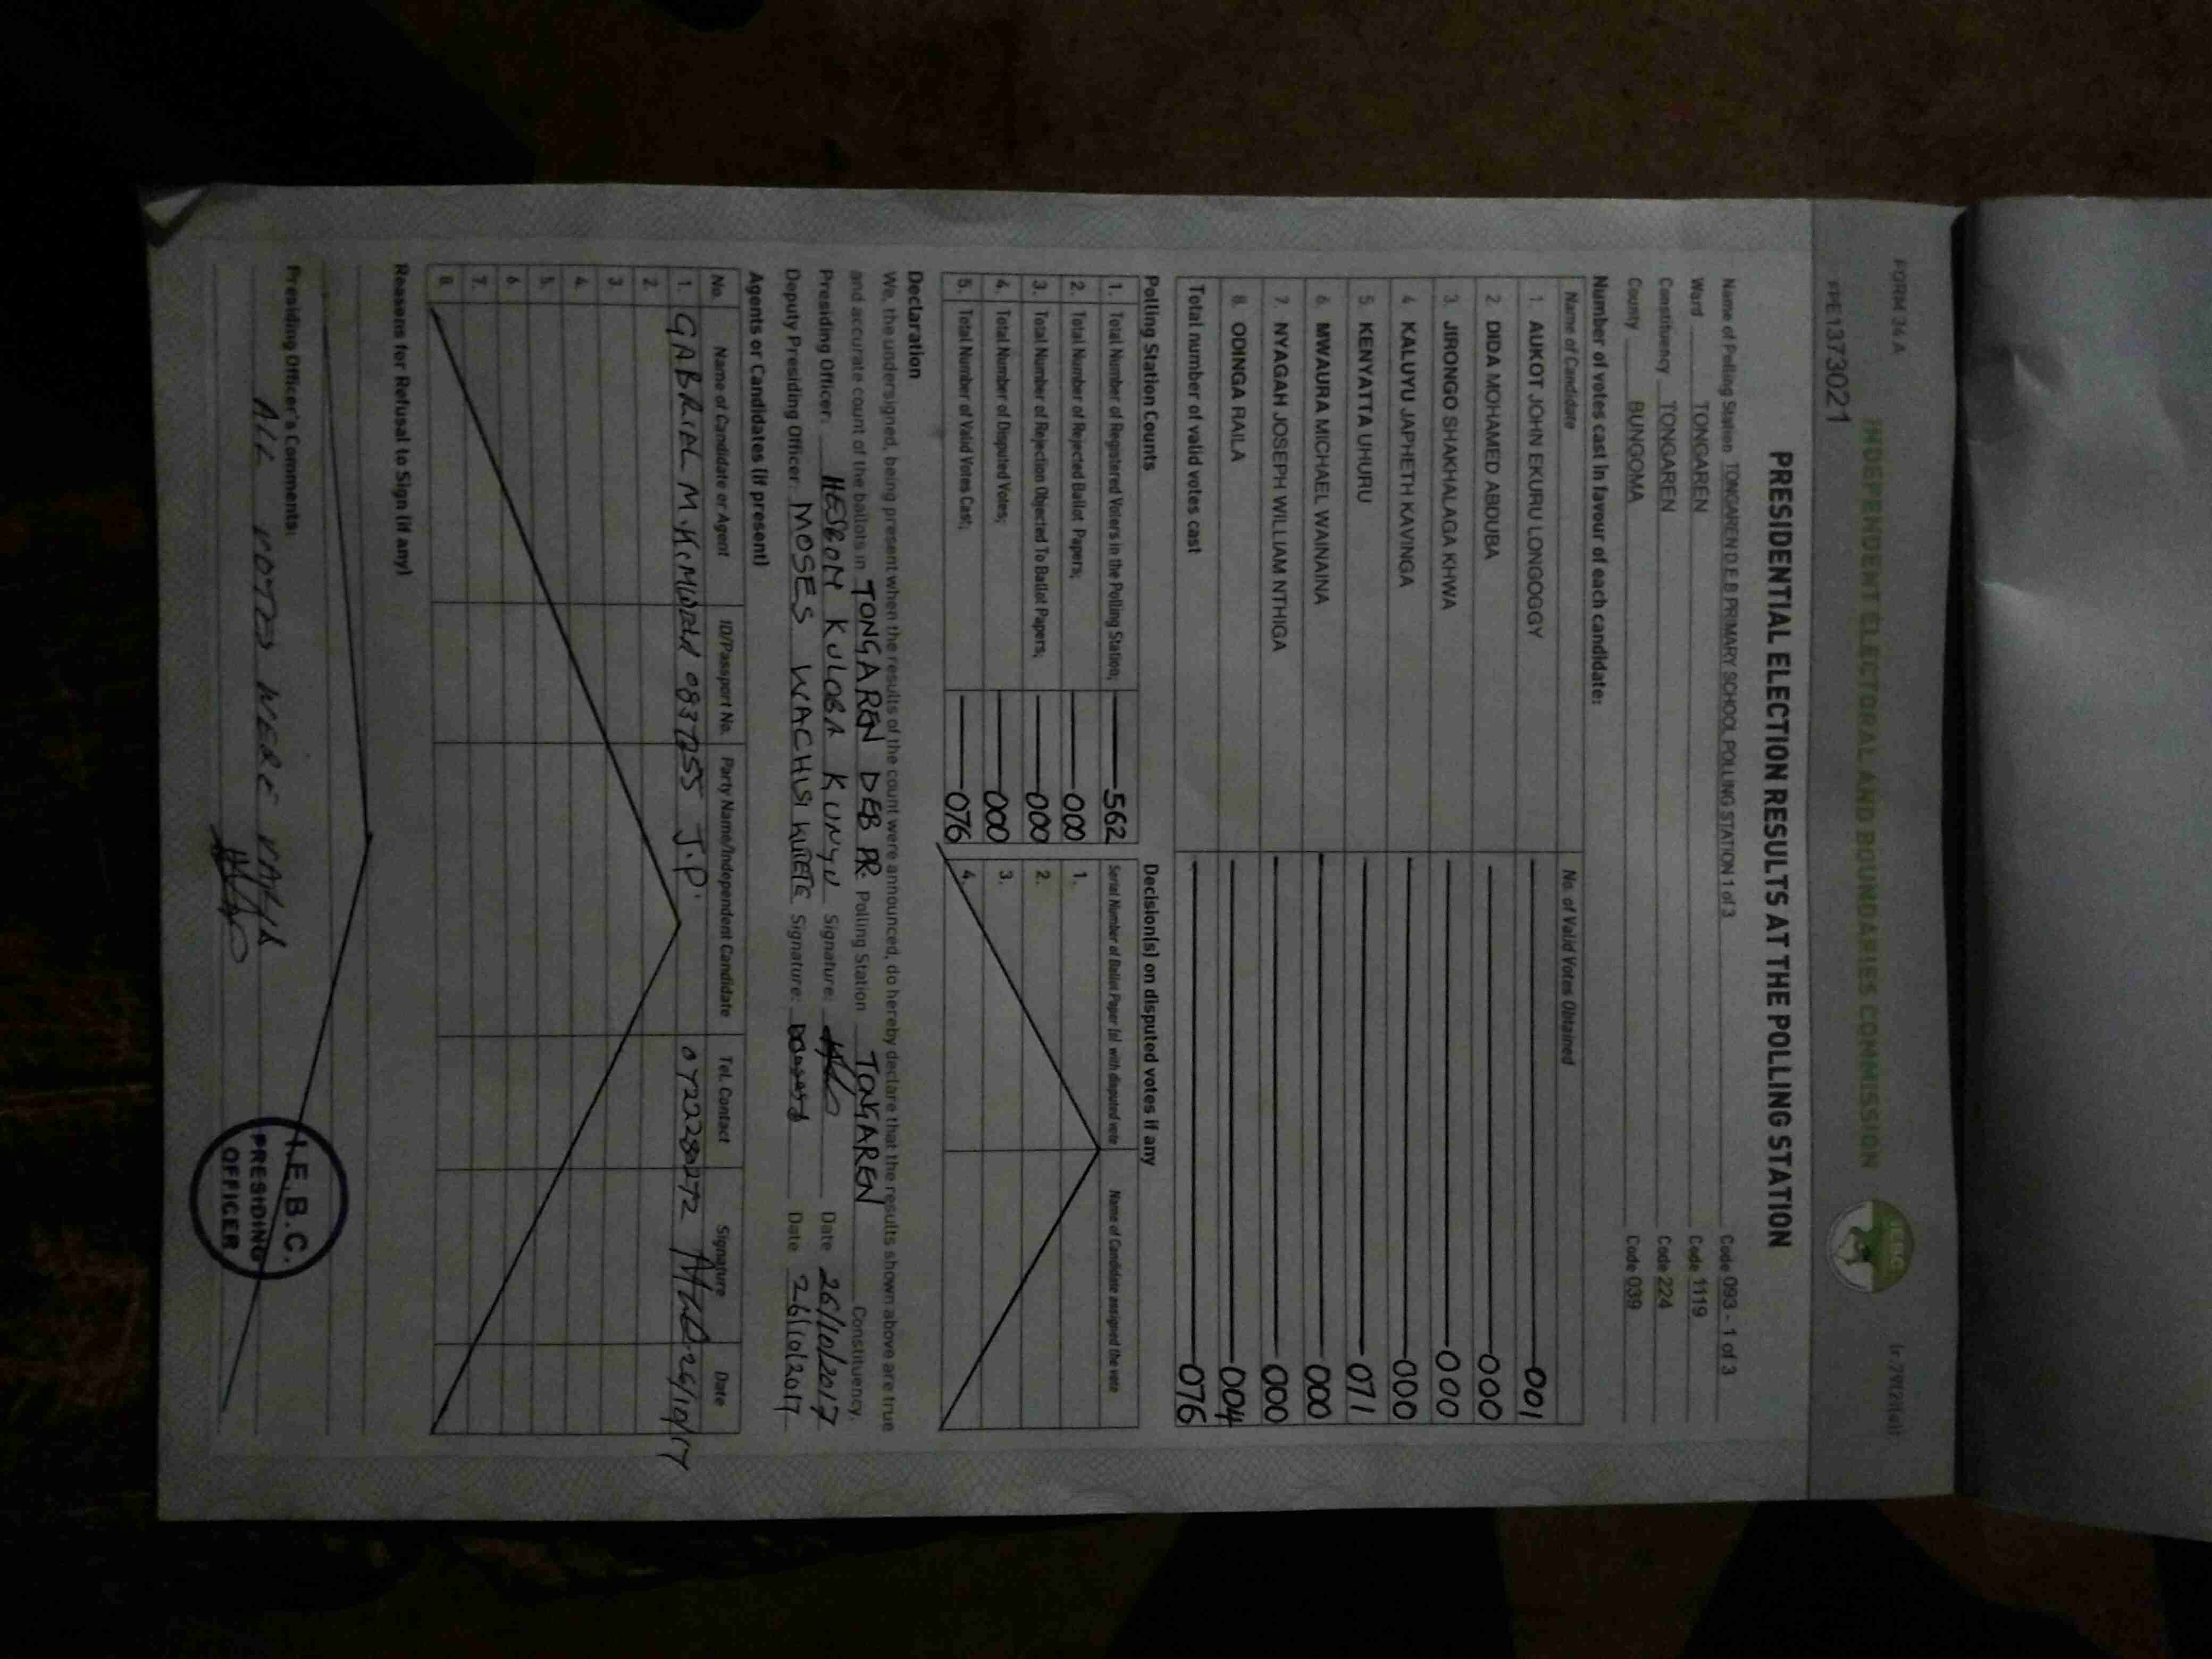 FORM 34 A
INDEPENDENT ELECTORAL AND BOUNDARIES COMMISSION
IEBC
PRESIDENTIAL ELECTION RESULTS AT THE POLLING STATION
Name of Polling Station TONGAREN D.E.B PRIMARY SCHOOL POLLING STATION 1 of 3 Code 093 - 1 of 3
Ward TONGAREN Code 1119
Constituency TONGAREN Code 224
County BUNGOMA Code 039
Number of votes cast in favour of each candidate:
Name of Candidate No. of Valid Votes Obtained
1. AUKOT JOHN EKURU LONGOGGY 001
2. DIDA MOHAMED ABDUBA 000
3. JIRONGO SHAKHALAGA KHWA 000
4. KALUYU JAPHETH KAVINGA 000
5. KENYATTA UHURU 071
6. MWAURA MICHAEL WAINAINA 000
7. NYAGAH JOSEPH WILLIAM NTHIGA 000
8. ODINGA RAILA 004
Total number of valid votes cast 076
Polling Station Counts
1. Total Number of Registered Voters in the Polling Station; 562
2. Total Number of Rejected Ballot Papers; 000
3. Total Number of Rejection Objected To Ballot Papers; 000
4. Total Number of Disputed Votes; 000
5. Total Number of Valid Votes Cast; 076
Decision(s) on disputed votes if any
Serial Number of Ballot Paper (s) with disputed vote Name of Candidate assigned the vote
1.
2.
3.
4.
Declaration
We, the undersigned, being present when the results of the count were announced, do hereby declare that the results shown above are true
and accurate count of the ballots in TONGAREN DEB PR. Polling Station TONGAREN Constituency.
Presiding Officer: HESBON KULOBA KUNYU Signature: Date 26/10/2017
Deputy Presiding Officer MOSES WACHISI KUTETE Signature: Date 26/10/2017
Agents or Candidates (if present)
No. Name of Candidate or Agent ID/Passport No. Party Name/Independent Candidate Tel. Contact Signature Date
1. GABRIEL M. J.P. 26/10/17
2.
3.
4.
5.
6.
7.
8.
Reasons for Refusal to Sign (if any)
Presiding Officer's Comments:
ALL VOTES WERE
I.E.B.C.
PRESIDING
OFFICER